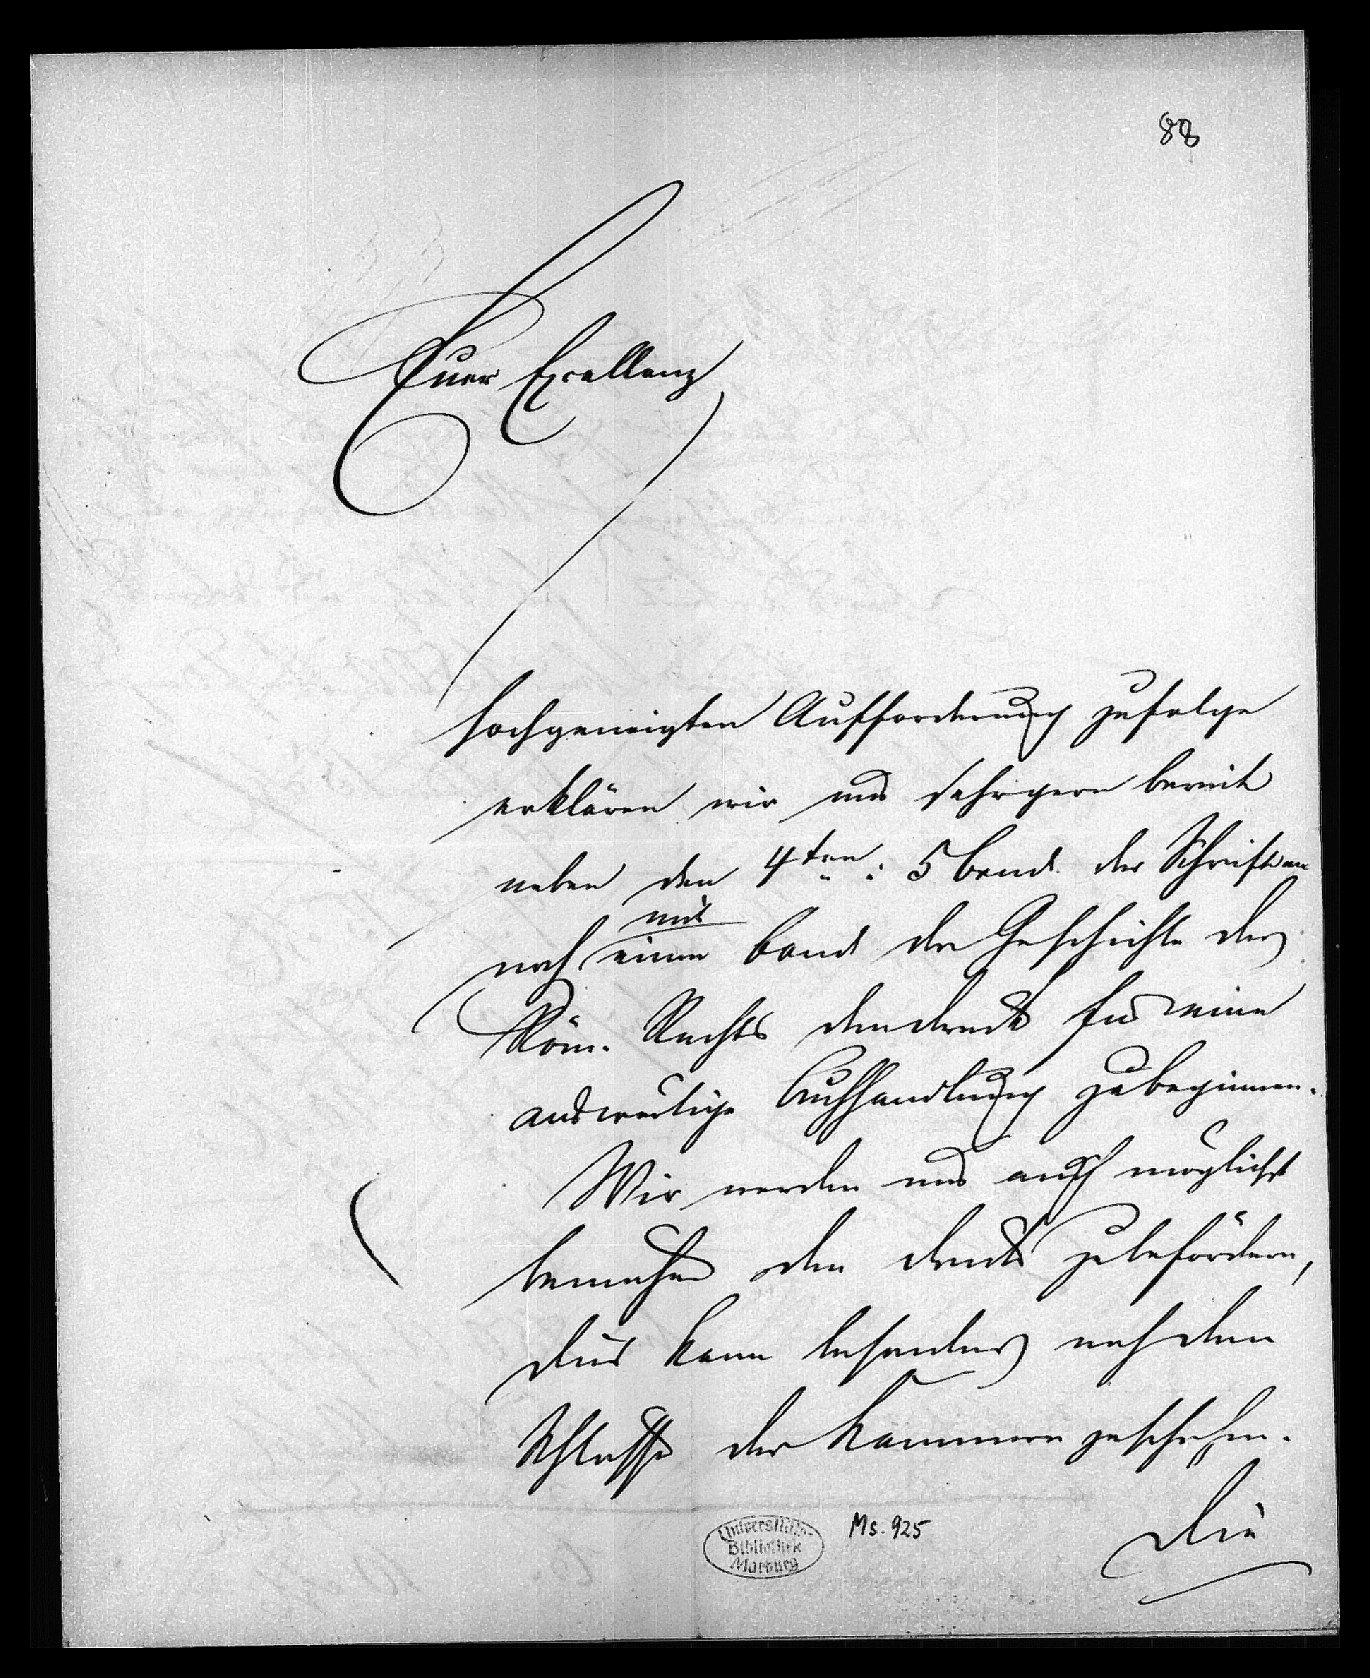 88
Euer Excellenz
hochgeneigten Aufforderung zufolge
erklären wir uns sehr gern bereit
neben den 4ten u: 5 Band der Schriften
noch einen Band der Geschichte des
Röm. Rechts den druck für eine
auswertige Buchhandlung zu beginnen.
Wir werden uns auch möglichst
bemühen den druck zu befördern,
dies kann besonders nach dem
Schlusse der Kammern geschehen.
Die
Universitäts-
Bibliothek
Marburg
Ms. 925